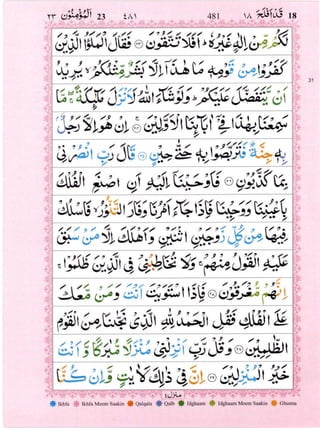 ٢٣ اَلْمُؤْمِنُوْن 23 ٤٨١ 481 قَدْ اَفْلَحَ ١٨ 18
لَكُمْ مِّنْ اِلٰهٍ غَيْرُهٗ ؕ اَفَلَا تَتَّقُوْنَ ﴿۲۳﴾ فَقَالَ الْمَلَؤُا الَّذِيْنَ
كَفَرُوْا مِنْ قَوْمِهٖ مَا هٰذَاۤ اِلَّا بَشَرٌ مِّثْلُكُمْ ۙ يُرِيْدُ
اَنْ يَّتَفَضَّلَ عَلَيْكُمْ ؕ وَلَوْ شَآءَ اللّٰهُ لَاَنْزَلَ مَلٰٓئِكَةً ۚۖ مَّا
سَمِعْنَا بِهٰذَا فِيْۤ اٰبَآئِنَا الْاَوَّلِيْنَ ﴿۲۴﴾ اِنْ هُوَ اِلَّا رَجُلٌۢ
بِهٖ جِنَّةٌ فَتَرَبَّصُوْا بِهٖ حَتّٰى حِيْنٍ ﴿۲۵﴾ قَالَ رَبِّ انْصُرْنِيْ
بِمَا كَذَّبُوْنِ ﴿۲۶﴾ فَاَوْحَيْنَاۤ اِلَيْهِ اَنِ اصْنَعِ الْفُلْكَ
بِاَعْيُنِنَا وَوَحْيِنَا فَاِذَا جَآءَ اَمْرُنَا وَفَارَ التَّنُّوْرُ ۙ فَاسْلُكْ
فِيْهَا مِنْ كُلٍّ زَوْجَيْنِ اثْنَيْنِ وَاَهْلَكَ اِلَّا مَنْ سَبَقَ
عَلَيْهِ الْقَوْلُ مِنْهُمْ ۚ وَلَا تُخَاطِبْنِيْ فِي الَّذِيْنَ ظَلَمُوْا ۚ
اِنَّهُمْ مُّغْرَقُوْنَ ﴿۲۷﴾ فَاِذَا اسْتَوَيْتَ اَنْتَ وَمَنْ مَّعَكَ
عَلَى الْفُلْكِ فَقُلِ الْحَمْدُ لِلّٰهِ الَّذِيْ نَجّٰىنَا مِنَ الْقَوْمِ
الظّٰلِمِيْنَ ﴿۲۸﴾ وَقُلْ رَّبِّ اَنْزِلْنِيْ مُنْزَلًا مُّبٰرَكًا وَّاَنْتَ
خَيْرُ الْمُنْزِلِيْنَ ﴿۲۹﴾ اِنَّ فِيْ ذٰلِكَ لَاٰيٰتٍ وَّاِنْ كُنَّا
منزل ٤
Ikhfa Ikhfa Meem Saakin Qalqala Qalb Idghaam Idghaam Meem Saakin Ghunna